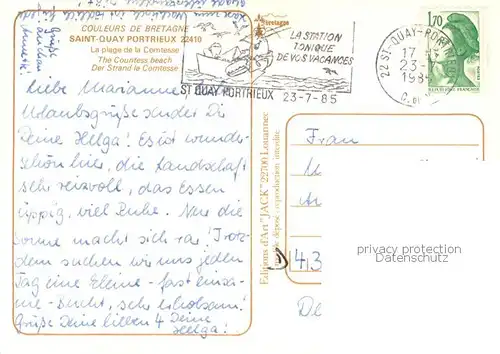 COULEURS DE BRETAGNE
SAINT-QUAY PORTRIEUX 22410
La plage de la Comtesse
The Countess beach
Der Strand la Comtesse
Liebe Marianne
Urlaubsgrüße sendet Dir
Deine Helga! Es ist wunder-
schön hier, die Landschaft
sehr reizvoll, das Essen
üppig, viel Ruhe. Nur die
Sonne macht sich rar! Trotz-
dem suchen wir uns jeden
Tag eine kleine - fast einsa-
me - Bucht, sehr erholsam!
Grüße Deine lieben 4 Deine
Helga!
bretagne
LA STATION
TONIQUE
DE VOS VACANCES
ST QUAY PORTRIEUX 23-7-85
22 ST-QUAY-PORTRIEUX
17
23-
198
1,70
REPUBLIQUE FRANÇAISE
Editions d'Art "JACK" 22700 Louannec
modèle déposé - reproduction interdite
Frau
privacy protection
Datenschutz
D
43
De